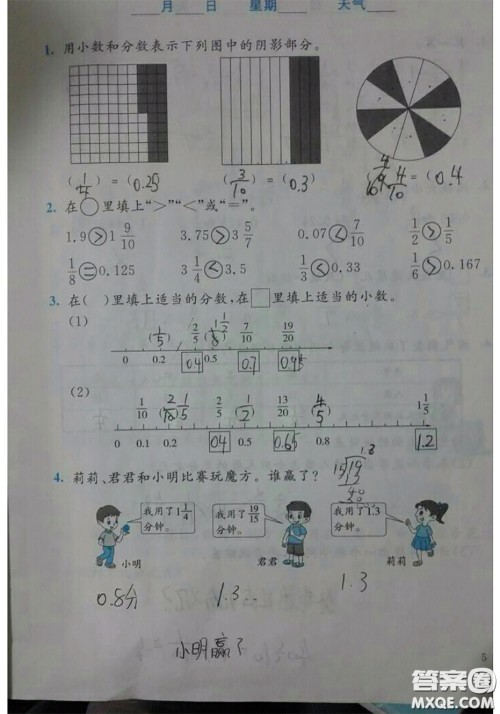 月 日 星期 天气
1. 用小数和分数表示下列图中的阴影部分。
(1/4)=(0.25) (3/10)=(0.3) (4/10)=(0.4
2. 在○里填上“>”“<”或“=”。
1.9 > 1 9/10 3.75 > 3 5/7 0.07 < 7/10 1/2 > 1/5
1/8 = 0.125 3 1/4 < 3.5 1/3 < 0.33 1/6 0.167
3. 在( )里填上适当的分数,在□里填上适当的小数。
(1)
(1/5) 2/5 1/2 7/10 19/20
0 0.2 0.4 0.5 0.7 0.95
(2)
1/10 1/5 2/5 (1/2) 13/20 4/5 1 1/5
0 0.1 0.2 0.4 0.5 0.65 0.8 1.2
4. 莉莉、君君和小明比赛玩魔方。谁赢了?
1.3
15 19
我用了1 1/4分钟。 我用了19/15分钟。 我用了1.3分钟。
小明 君君 莉莉
0.8分 1.3.. 1.3
小明赢了
5
答案圈
MXQE.COM